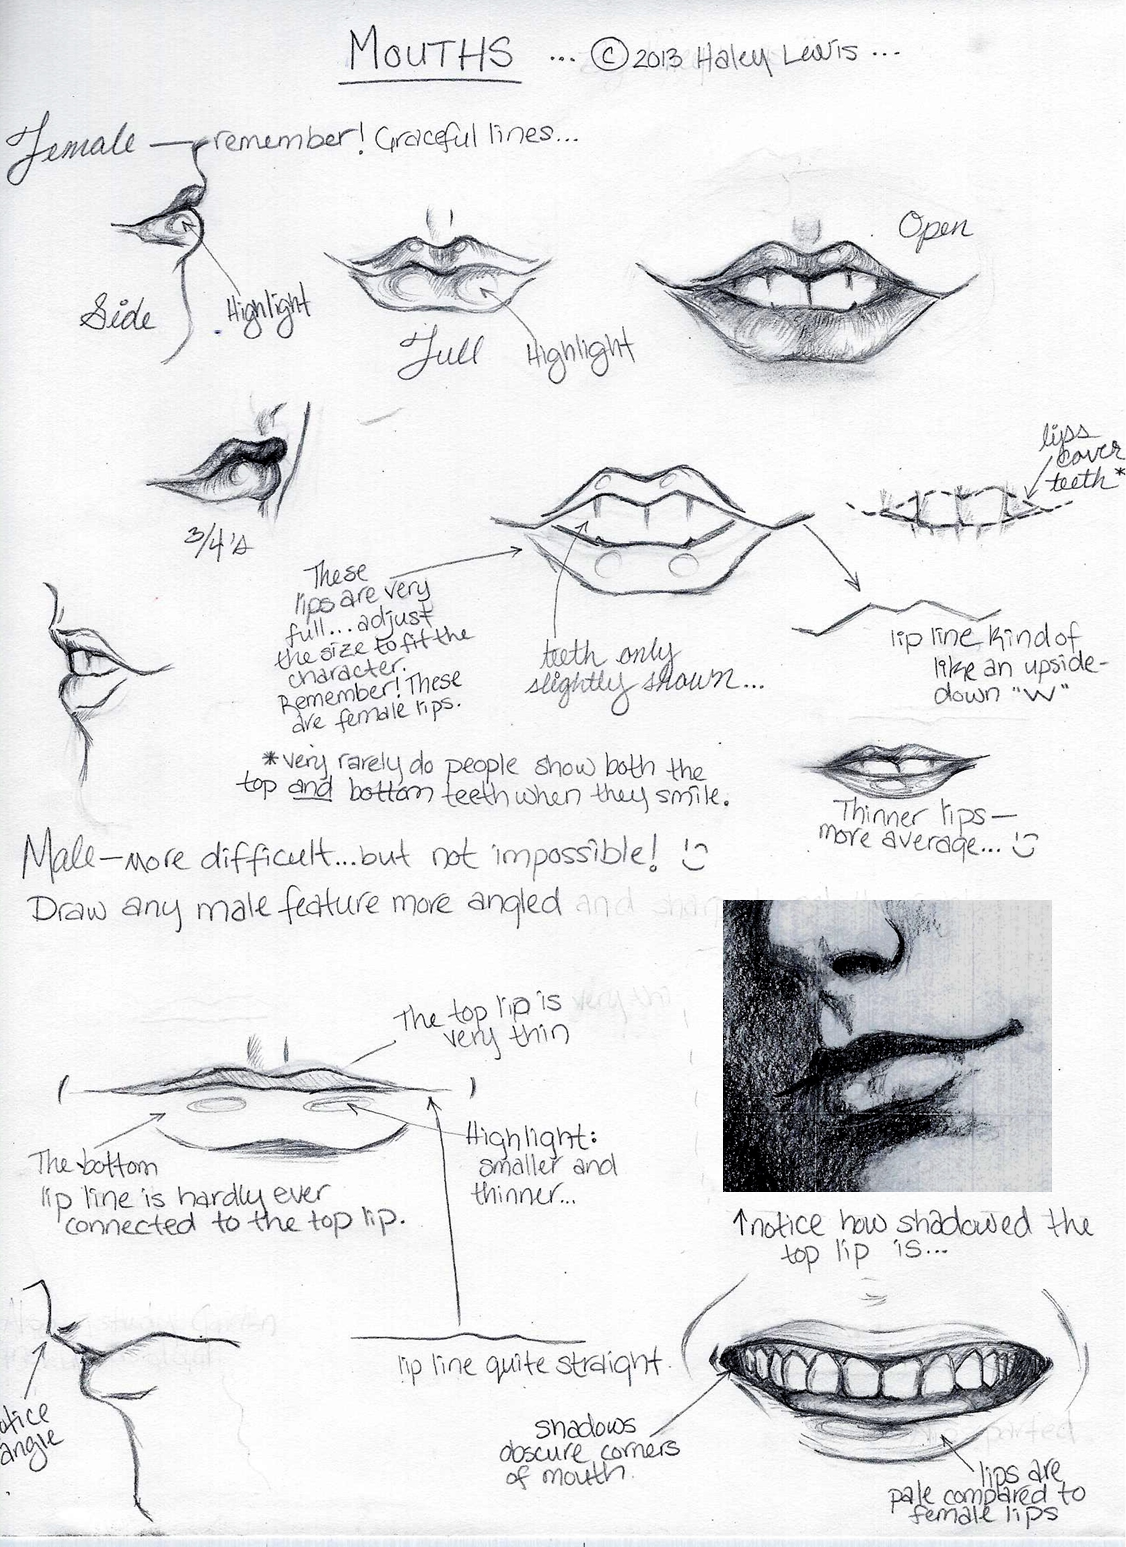 MOUTHS ... © 2013 Haley Lewis ...
Female — remember! Graceful lines...
Open
Side
Highlight
Full
Highlight
lips
cover
teeth*
3/4's
These
lips are very
full... adjust
the size to fit the
character.
Remember! These
are female lips.
teeth only
slightly shown...
lip line kind of
like an upside-
down "W"
*very rarely do people show both the
top and bottom teeth when they smile.
Thinner lips —
more average... :)
Male - more difficult... but not impossible! :)
Draw any male feature more angled
The top lip is
very thin
The bottom
lip line is hardly ever
connected to the top lip.
Highlight:
smaller and
thinner...
↑notice how shadowed the
top lip is...
otice
angle
lip line quite straight.
shadows
obscure corners
of mouth.
lips are
pale compared to
female lips